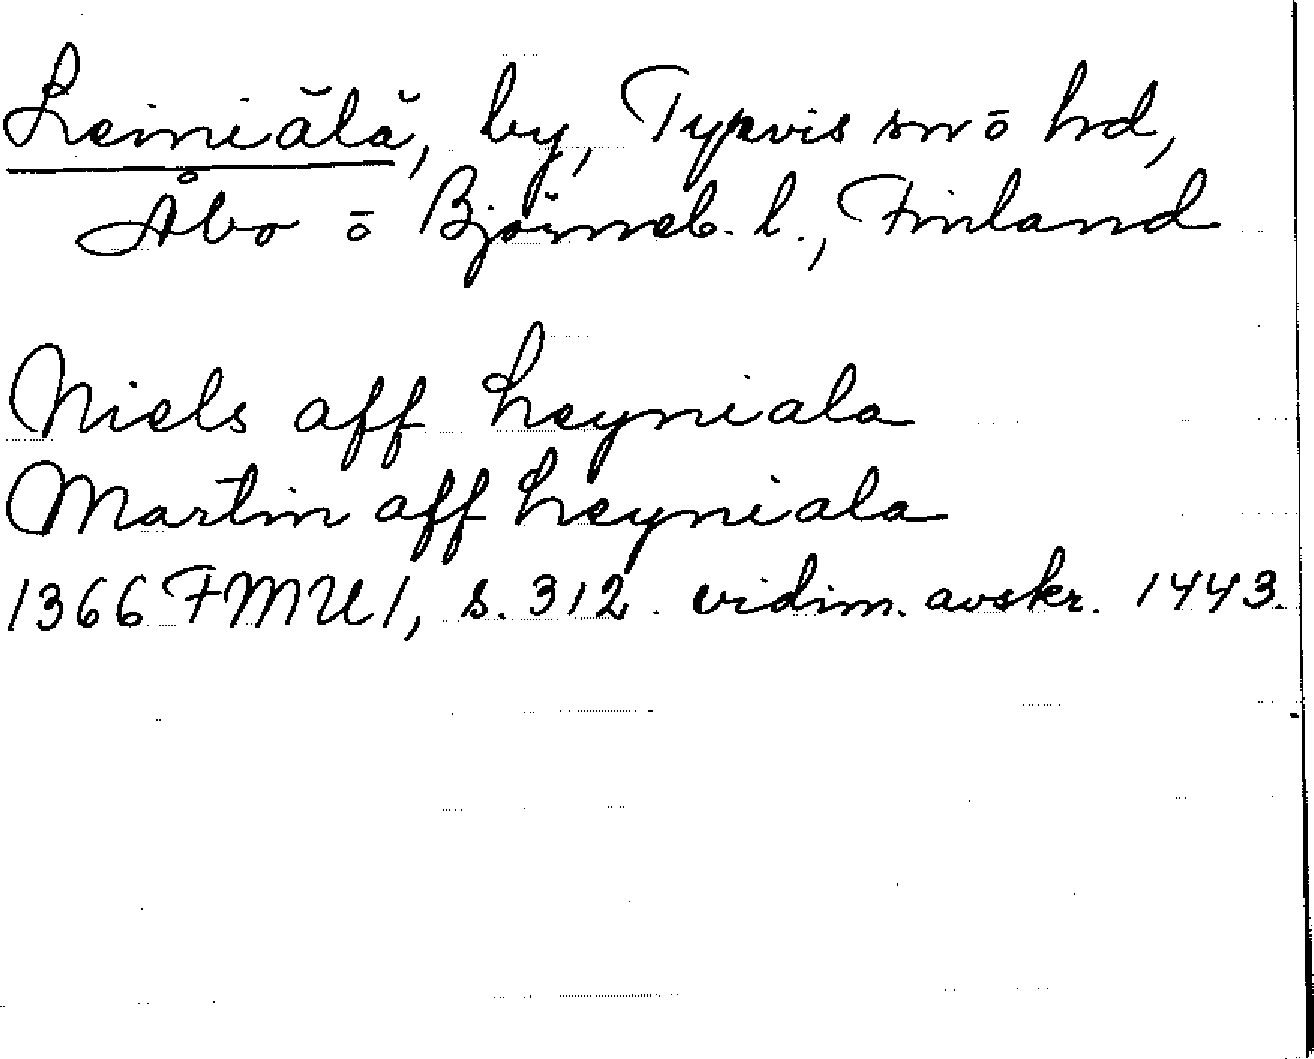 Leiniälä, by, Tyrvis sn o hd,
Åbo o Björneb. l., Finland
Niels aff Leyniala
Martin aff Leyniala
1366 FMU 1, s. 312 vidim. avskr. 1443.